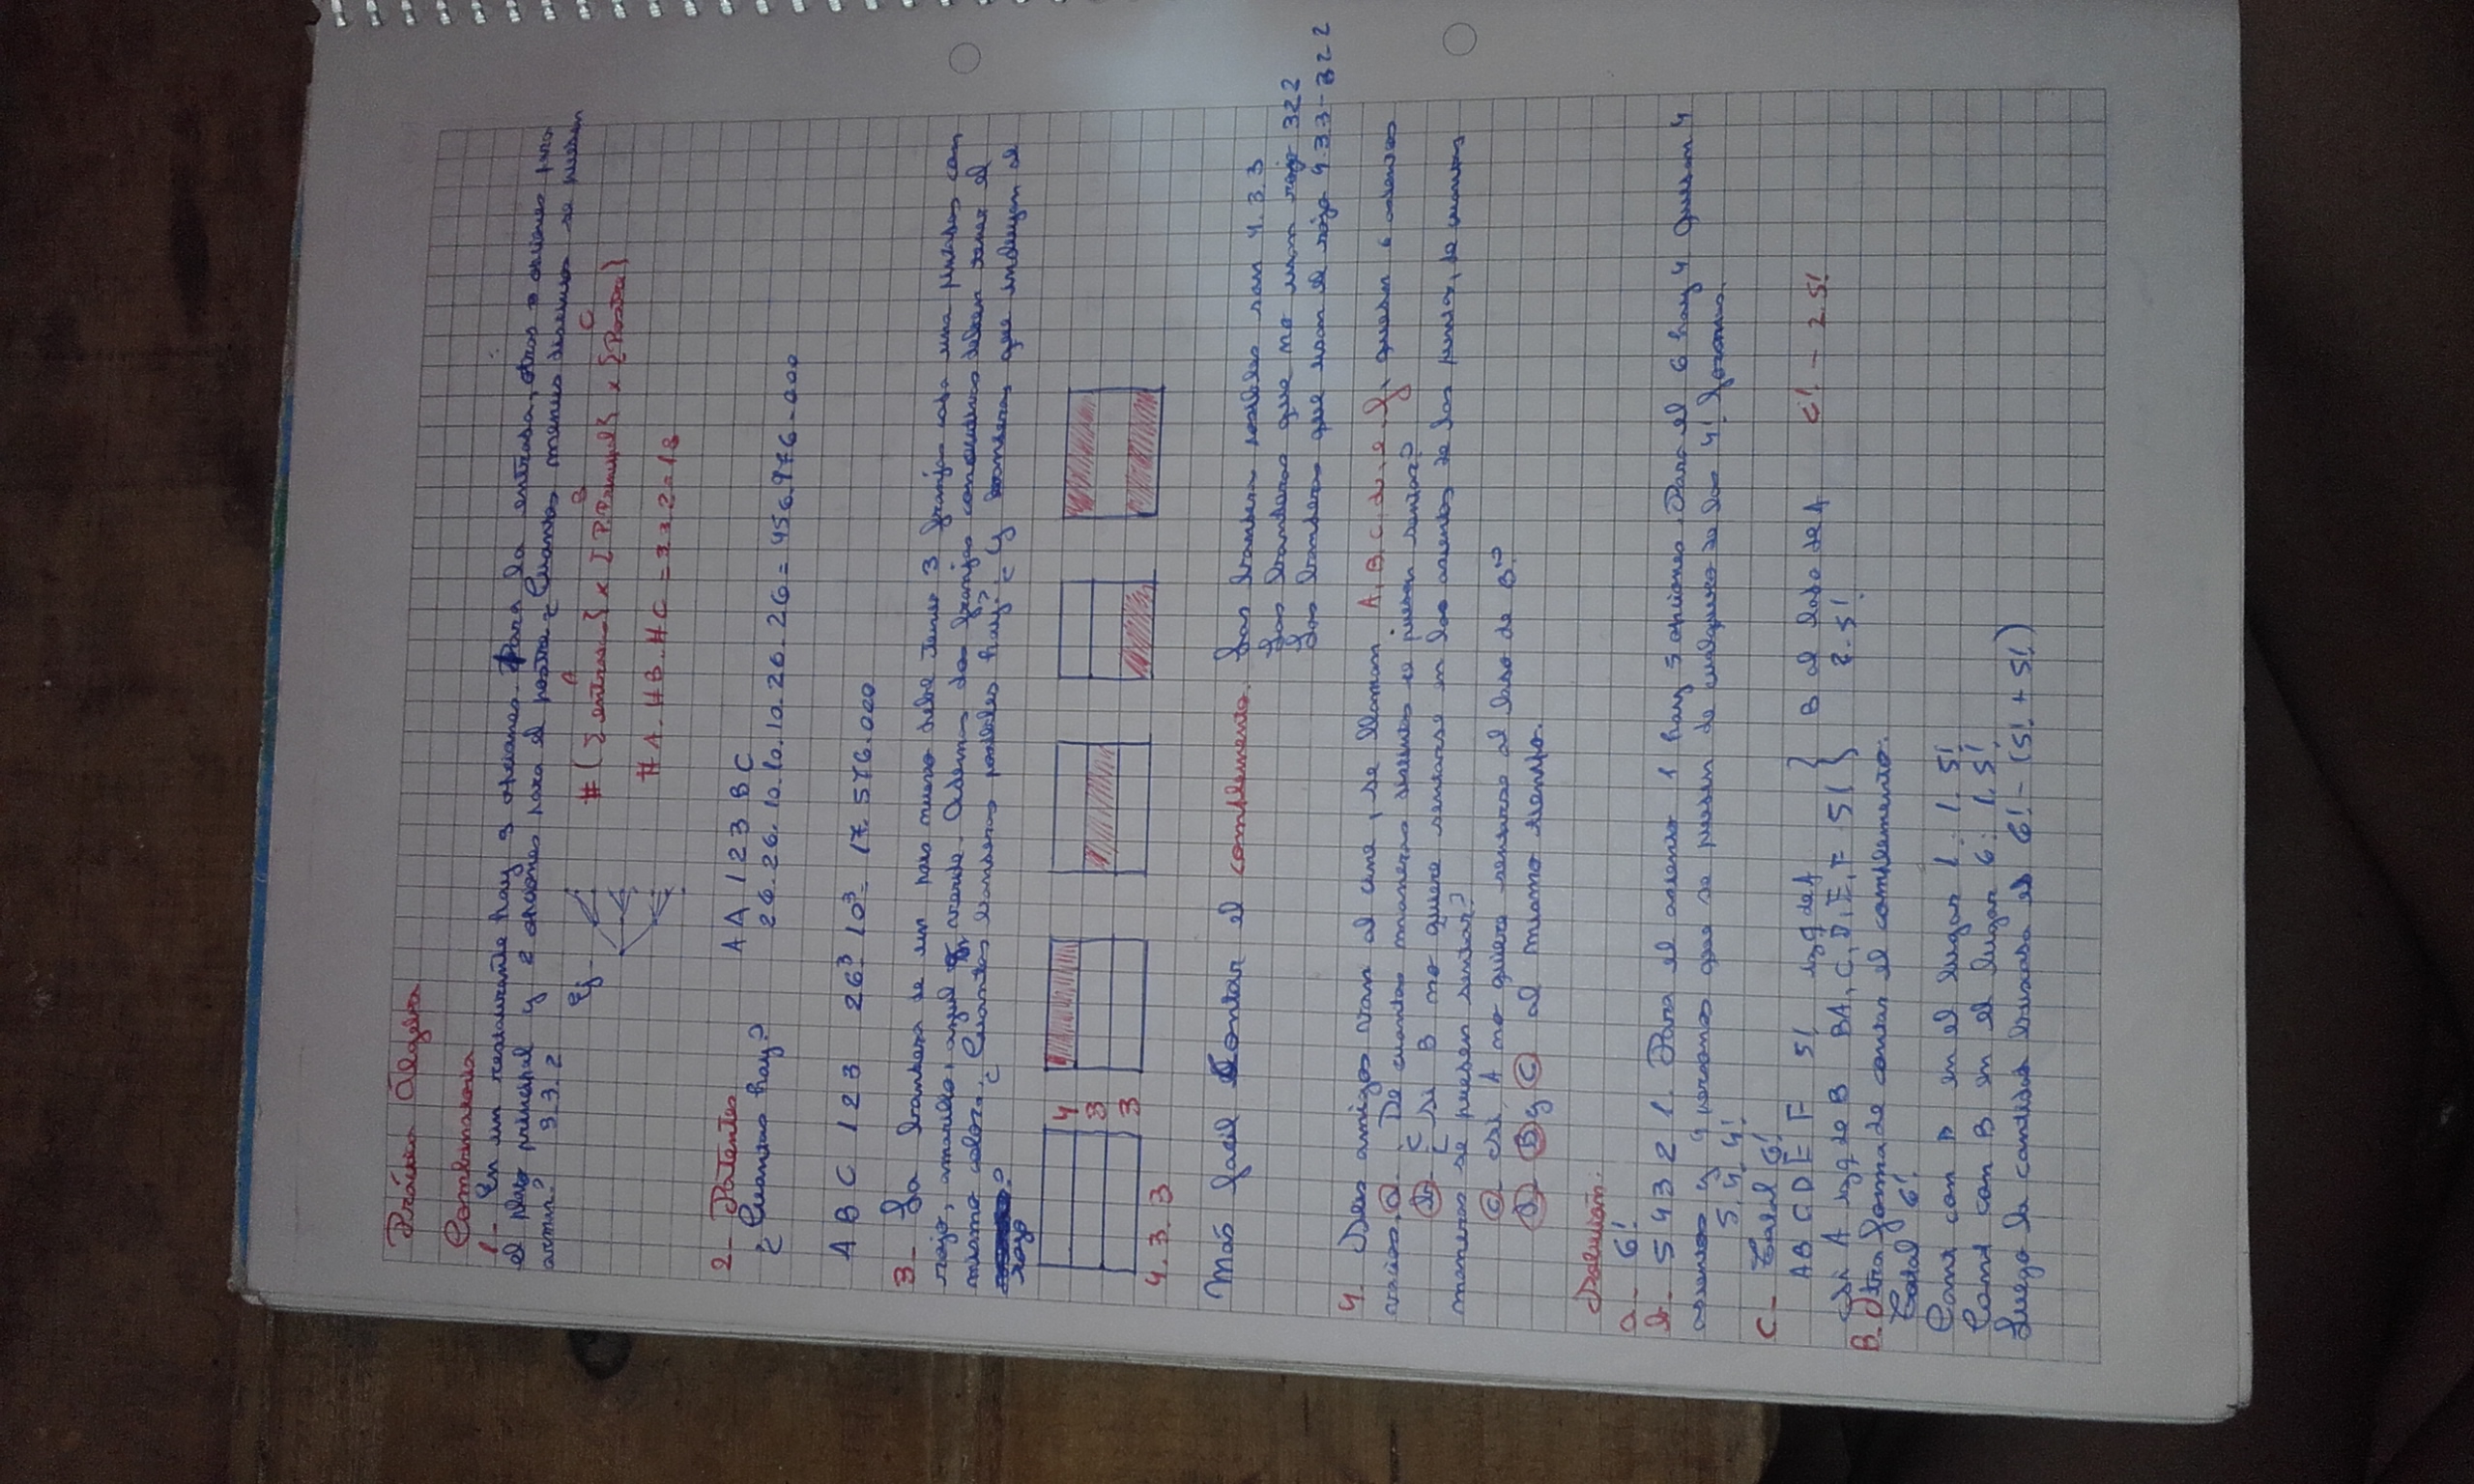 Práctica Álgebra
Combinatoria
1- En un restaurante hay 3 opciones para la entrada, otras 3 opciones para
el plato principal y 2 opciones para el postre ¿Cuantos menus distintos se pueden
armar? 3.3.2
Ej
A B C
# ({entrada} x {P.Principal} x {Postre})
#A.#B.#C = 3.3.2=18
2- Patentes AA 123 BC
¿Cuantas hay? 26.26.10.10.10.26.26 = 456.976.000
ABC 123 26³ 10³= 17.576.000
3- La bandera de un pais nuevo debe tener 3 franjas cada una pintadas con
rojo, amarillo, azul o verde. Ademas dos franjas consecutivas deben tener el
mismo color. ¿Cuantas banderas posibles hay? ¿y banderas que incluyan al
rojo?
4
3
3
4.3.3
Más facil contar el complemento. Las bandera posibles son 4.3.3
Las banderas que no usan rojo 322
Las banderas que usan el rojo 4.3.3-322
4. Seis amigos van al cine, se llaman A, B, C, d, e, f, quedan 6 asientos
vacios. a. ¿De cuantas maneras distintas se pueden sentar?
b- ¿Si B no quiere sentarse en los asientos de las puntas, de cuantas
maneras se pueden sentar?
c- ¿Si A no quiere sentarse al lado de B?
d- B y C al mismo tiempo.
Solución:
a- 6!
b- 5 4 3 2 1. Para el asiento 1 hay 5 opciones. Para el 6 hay 4 quedan 4
asientos y 4 personas que se pueden de cualquiera de las 4! formas.
5.4.4!
C- Total 6!
AB C D E F 5! izq de A } B al lado de A 6! - 2.5!
Si A izq de B BA, C, D, E, F 5! } 2.5!
B. Otra forma de contar el complemento.
Total 6!
Cant con B en el lugar 1: 1.5!
Cant con B en el lugar 6: 1.5!
Luego la cantidad buscada es 6! - (5! + 5!)